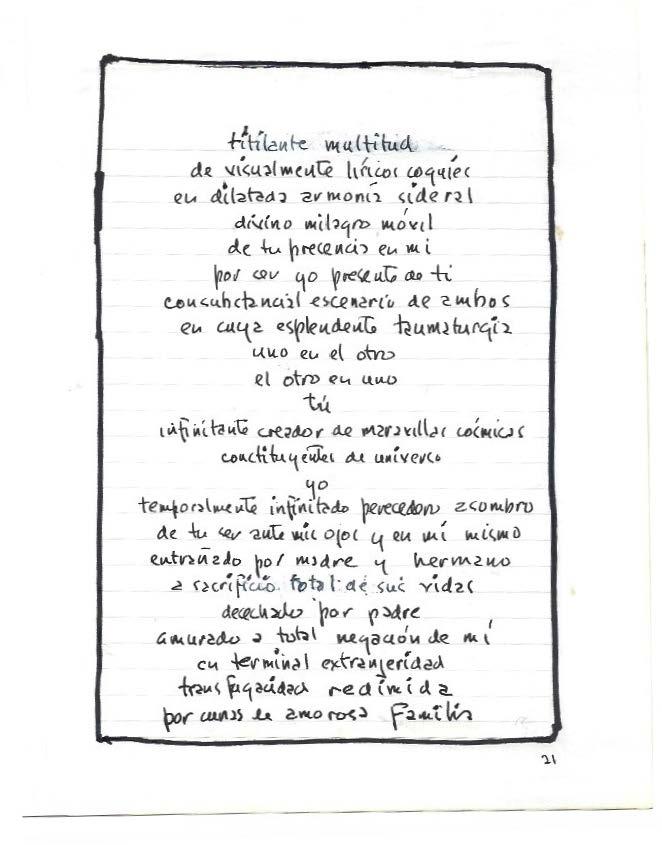 titilante multitud
de visualmente líricos coquíes
en dilatada armonía sideral
divino milagro móvil
de tu presencia en mi
por ser yo presente de ti
consubstancial escenario de ambos
en cuya esplendente taumaturgia
uno en el otro
el otro en uno
tú
infinitante creador de maravillas cósmicas
constituyentes de universo
yo
temporalmente infinitado perecedero asombro
de tu ser ante mis ojos y en mí mismo
entrañado por madre y hermano
a sacrificio total de sus vidas
desechado por padre
amurado a total negación de mí
en terminal extranjeridad
transfugacidad redimida
por cunas de amorosa familia
21